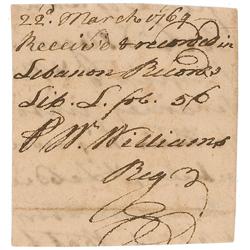 22d. March 1764
Receiv'd & recorded in
Lebanon Records
Lib. L. fo. 56
P Wm. Williams
Reg